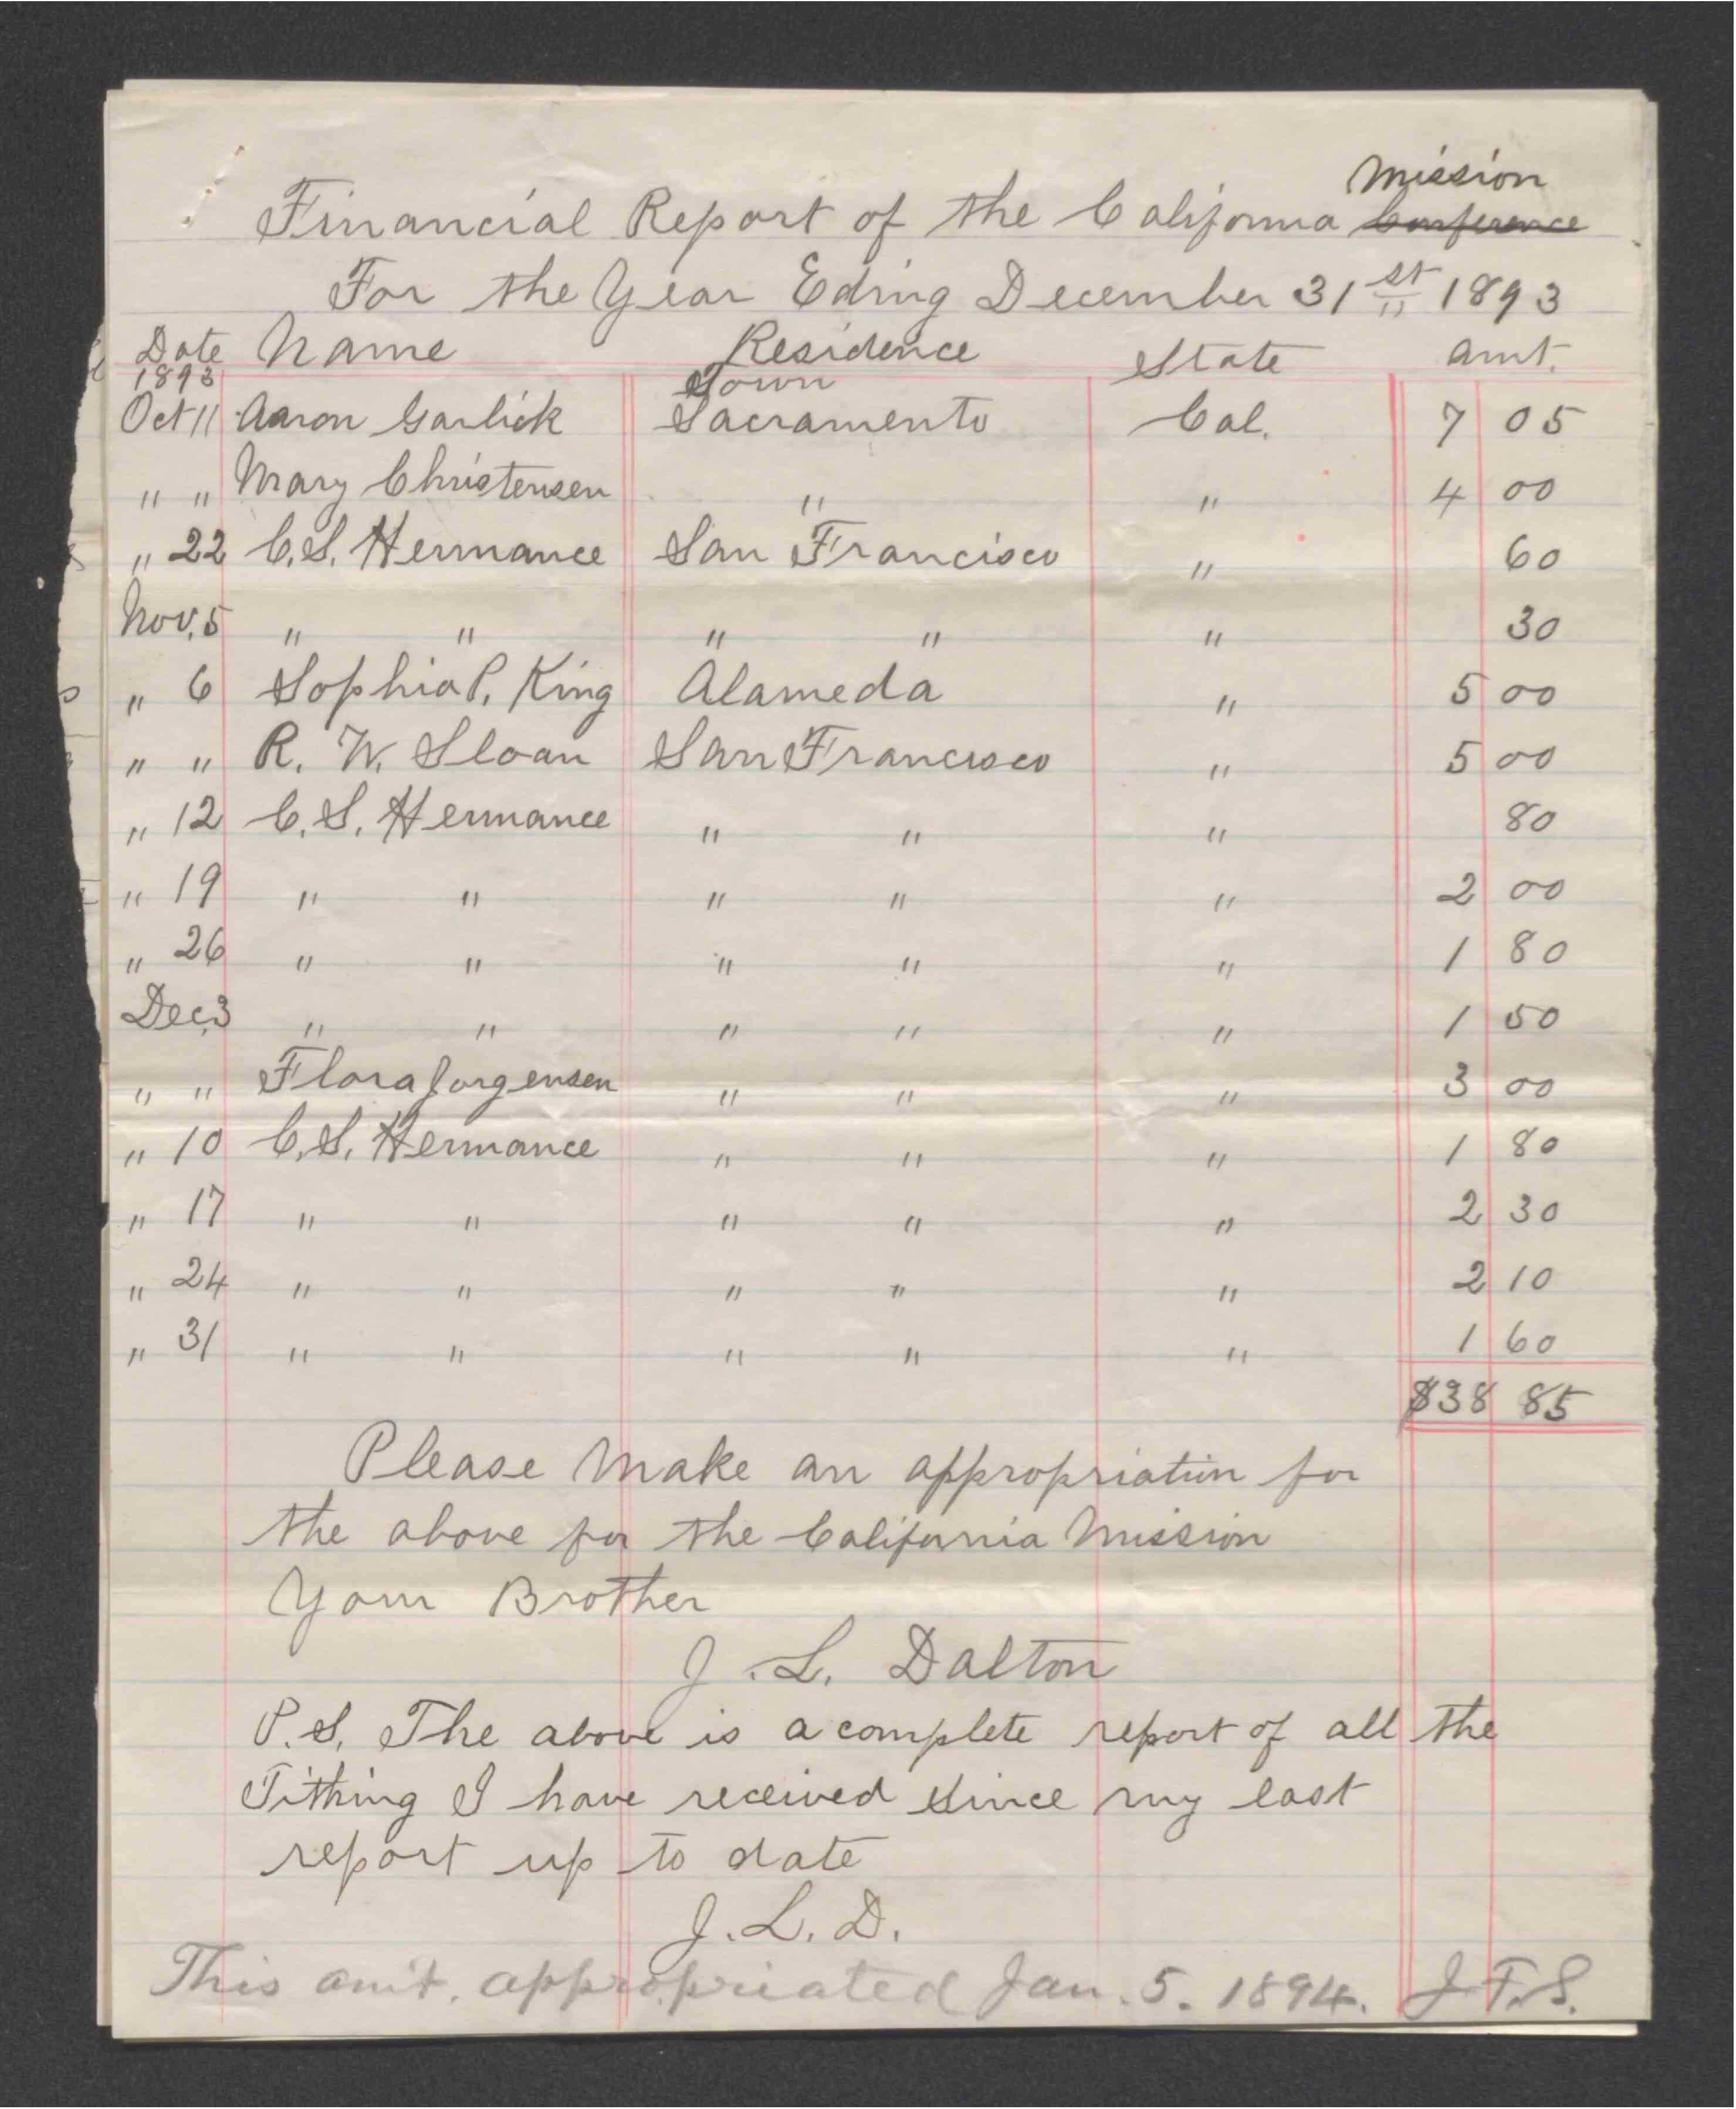 Mission
Financial Report of the California Conference
For the Year Eding December 31st 1893
Date Name Residence State Amt.
1893 Town
Oct 11 Aaron Garlick Sacramento Cal. 7 05
" " Mary Christensen " " 4 00
" 22 C.S. Hermance San Francisco " 60
Nov. 5 " " " " " 30
" 6 Sophia P. King Alameda " 5 00
" " R. W. Sloan San Francisco " 5 00
" 12 C.S. Hermance " " " 80
" 19 " " " " " 2 00
" 26 " " " " " 1 80
Dec. 3 " " " " " 1 50
" " Flora Jorgensen " " " 3 00
" 10 C.S. Hermance " " " 1 80
" 17 " " " " " 2 30
" 24 " " " " " 2 10
" 31 " " " " " 1 60
$38 85
Please Make an appropriation for
the above for the California Mission
Your Brother
J. L. Dalton
P.S. The above is a complete report of all the
Tithing I have received since my last
report up to date
J. L. D.
This amt. appropriated Jan. 5. 1894. J.F.S.